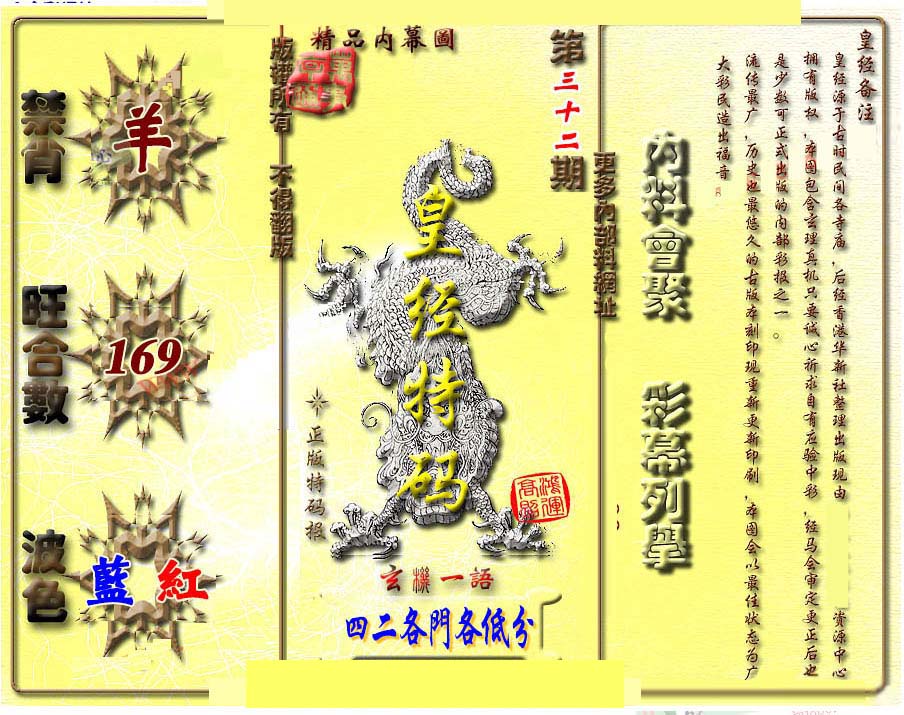 精品内幕圖
第三十二期
版權所有 不得翻版
更多內部料網址
禁肖
羊
旺合數
169
波色
藍 紅
皇经特码
正版特码报
鴻運高照
玄機一語
四二各門各低分
內料會聚
彩幕列學
皇经备注
皇经源于古时民间各寺庙,后经香港华新社整理出版现由 资源中心
拥有版权,本图包含玄理真机只要诚心祈求自有应验中彩,经马会审定更正后也
是少数可正式出版的内部彩报之一。
流传最广,历史也最悠久的古版本刻印现重新更新印刷,本图会以最佳状态为广
大彩民造出福音